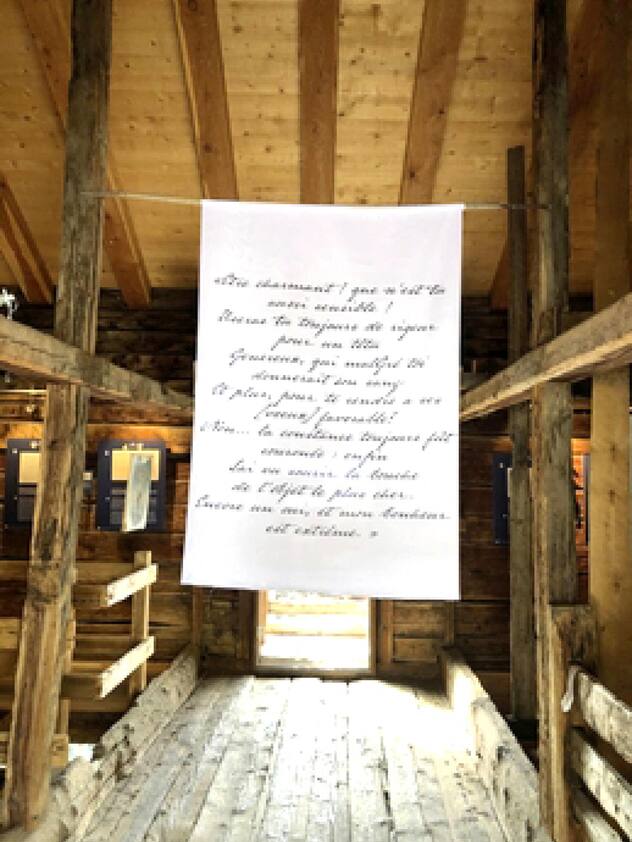 Etre charmant ! que n'est tu
aussi sensible !
Useras tu toujours de rigueur
pour un tétu
Genereux, qui malgré toi
donnerait son sang
Et plus, pour te rendre a ses
[voeux] favorable !
Non... la constance toujours fut
couronée ; enfin
J'ai vu sourir la bouche
de l'objet le plus cher.
Encore un an, et mon bonheur
est extrême. »